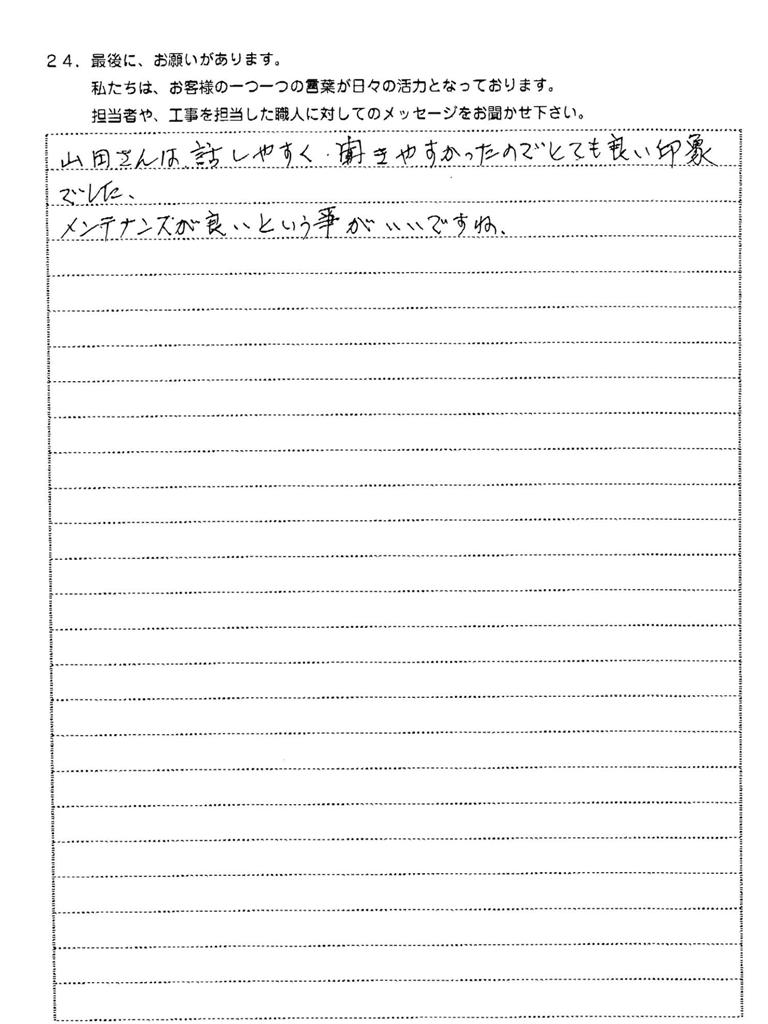 24．最後に、お願いがあります。
私たちは、お客様の一つ一つの言葉が日々の活力となっております。
担当者や、工事を担当した職人に対してのメッセージをお聞かせ下さい。
山田さんは、話しやすく、聞きやすかったのでとても良い印象
でした、
メンテナンズが良いという事がいいですね、